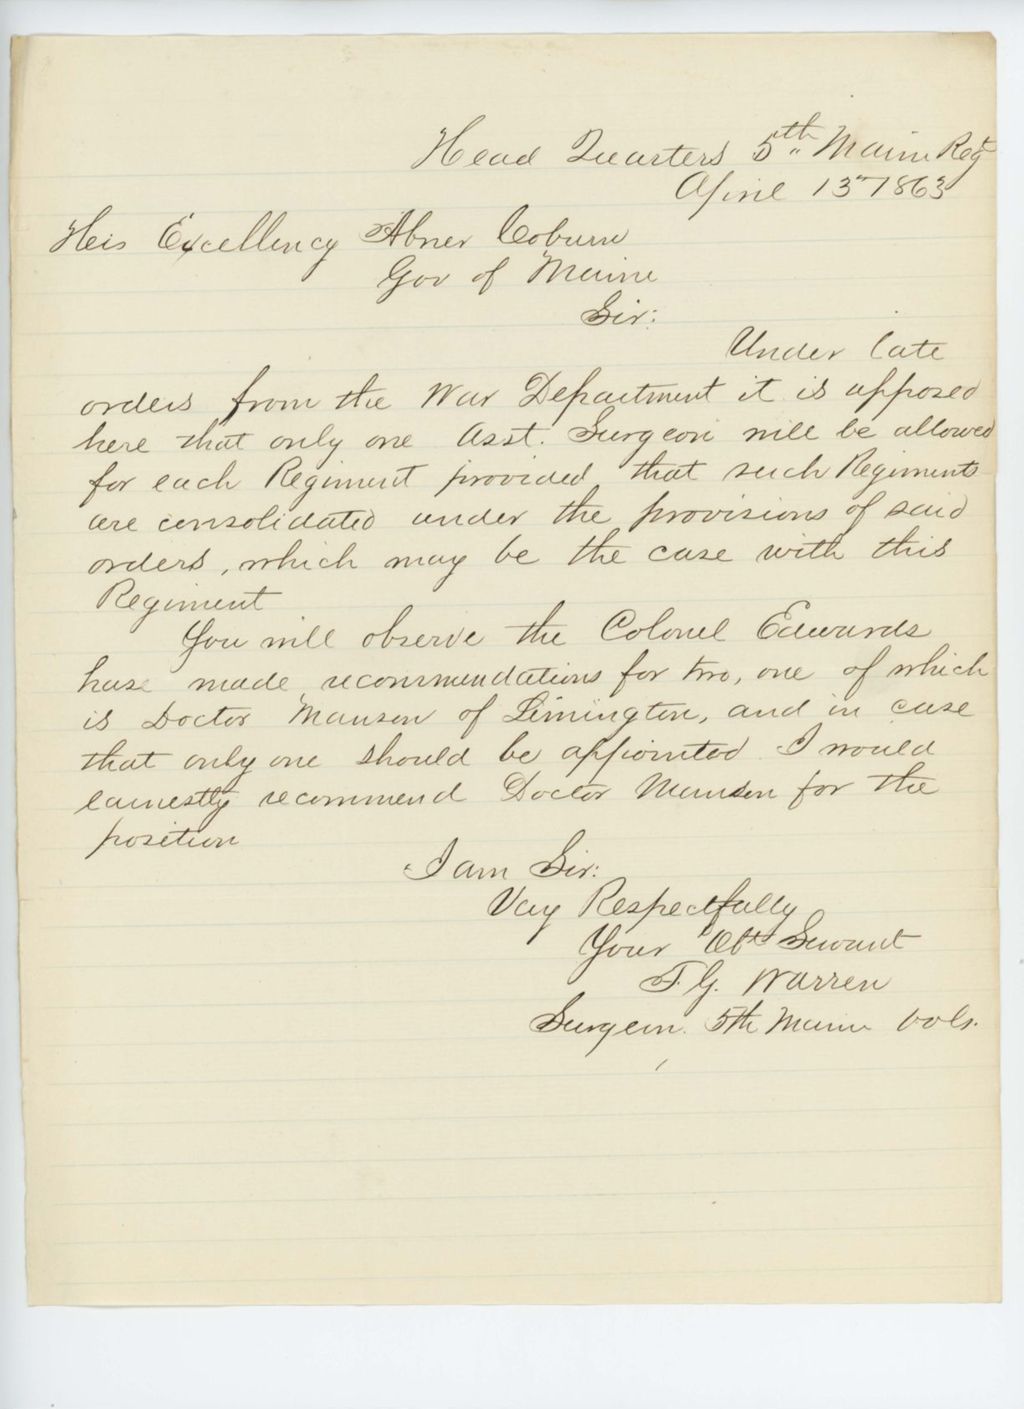 Head Quarters 5th Maine Regt
April 13th 1863
His Excellency Abner Coburn
Gov of Maine
Sir:
Under late
orders from the War Department it is opposed
here that only one Asst. Surgeon will be allowed
for each Regiment provided that such Regiments
are consolidated under the provisions of said
orders, which may be the case with this
Regiment
You will observe the Colonel Edwards
has made recommendations for two, one of which
is Doctor Manson of Limington, and in case
that only one should be appointed I would
earnestly recommend Doctor Manson for the
position
I am Sir:
Very Respectfully
Your Obt Servant
F. G. Warren
Surgeon. 5th Maine Vols.